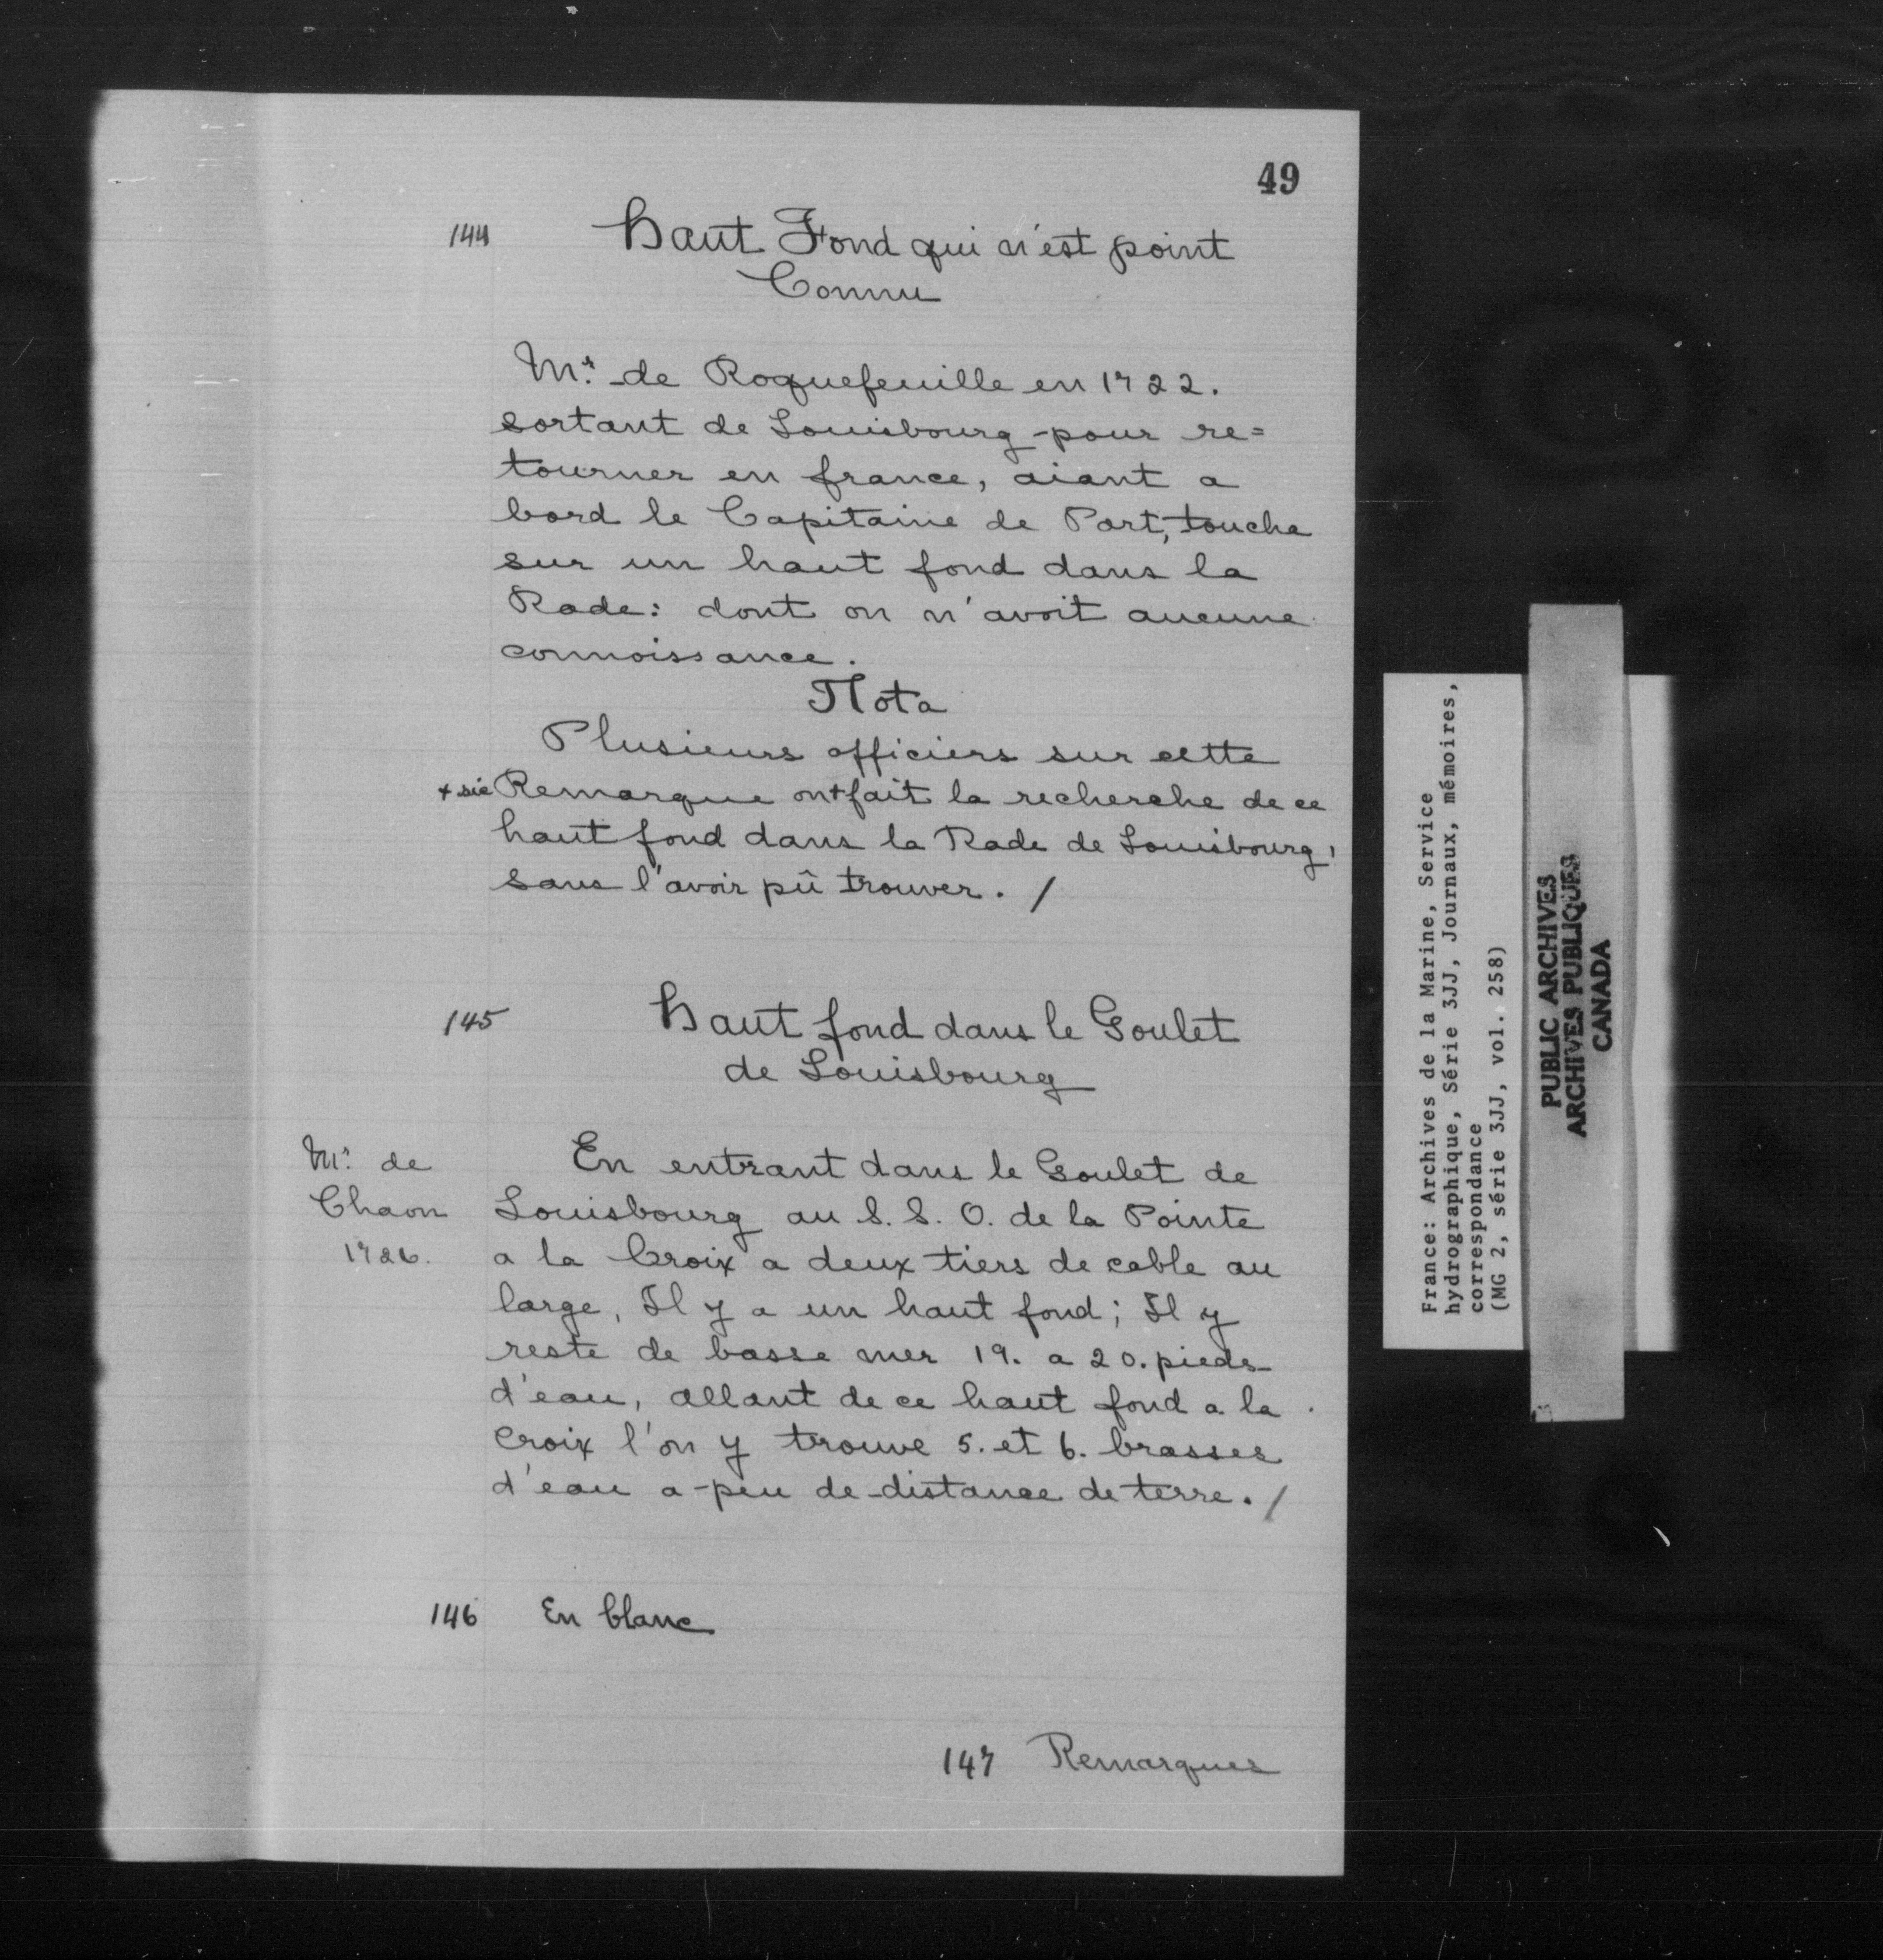 49
144 Haut Fond qui n'est point
Connu
Mr. de Roquefeuille en 1722.
sortant de Louisbourg pour re=
tourner en france, aiant a
bord le Capitaine de Port, touche
sur un haut fond dans la
Rade: dont on n'avoit aucune
connoissance.
Nota
Plusieurs officiers sur cette
+ sic Remarque on+fait la recherche de ce
haut fond dans la Rade de Louisbourg,
sans l'avoir pû trouver. /
145 Haut fond dans le Goulet
de Louisbourg
Mr. de
Chaon
1726.
En entrant dans le Goulet de
Louisbourg au S. S. O. de la Pointe
a la Croix a deux tiers de cable au
large, Il y a un haut fond; Il y
reste de basse mer 19. a 20. pieds
d'eau, allant de ce haut fond a la
Croix l'on y trouve 5. et 6. brasses
d'eau a peu de distance de terre. /
146 En blanc
147 Remarques
France: Archives de la Marine, Service
hydrographique, Série 3JJ, Journaux, mémoires,
correspondance
(MG 2, série 3JJ, vol. 258)
PUBLIC ARCHIVES
ARCHIVES PUBLIQUES
CANADA